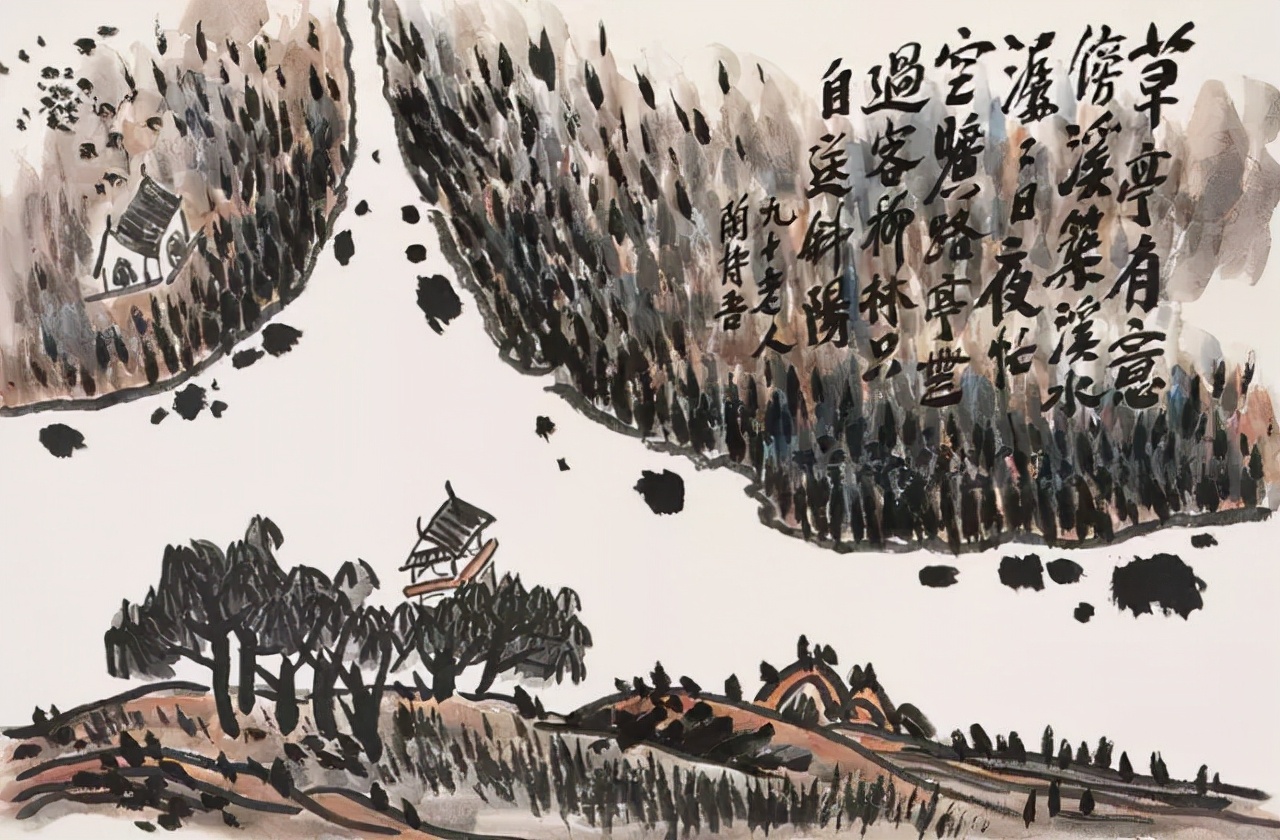 草亭有意
傍溪築溪水
潺〻日夜忙
空賸路亭無
過客柳林只
自送斜陽
九十老人